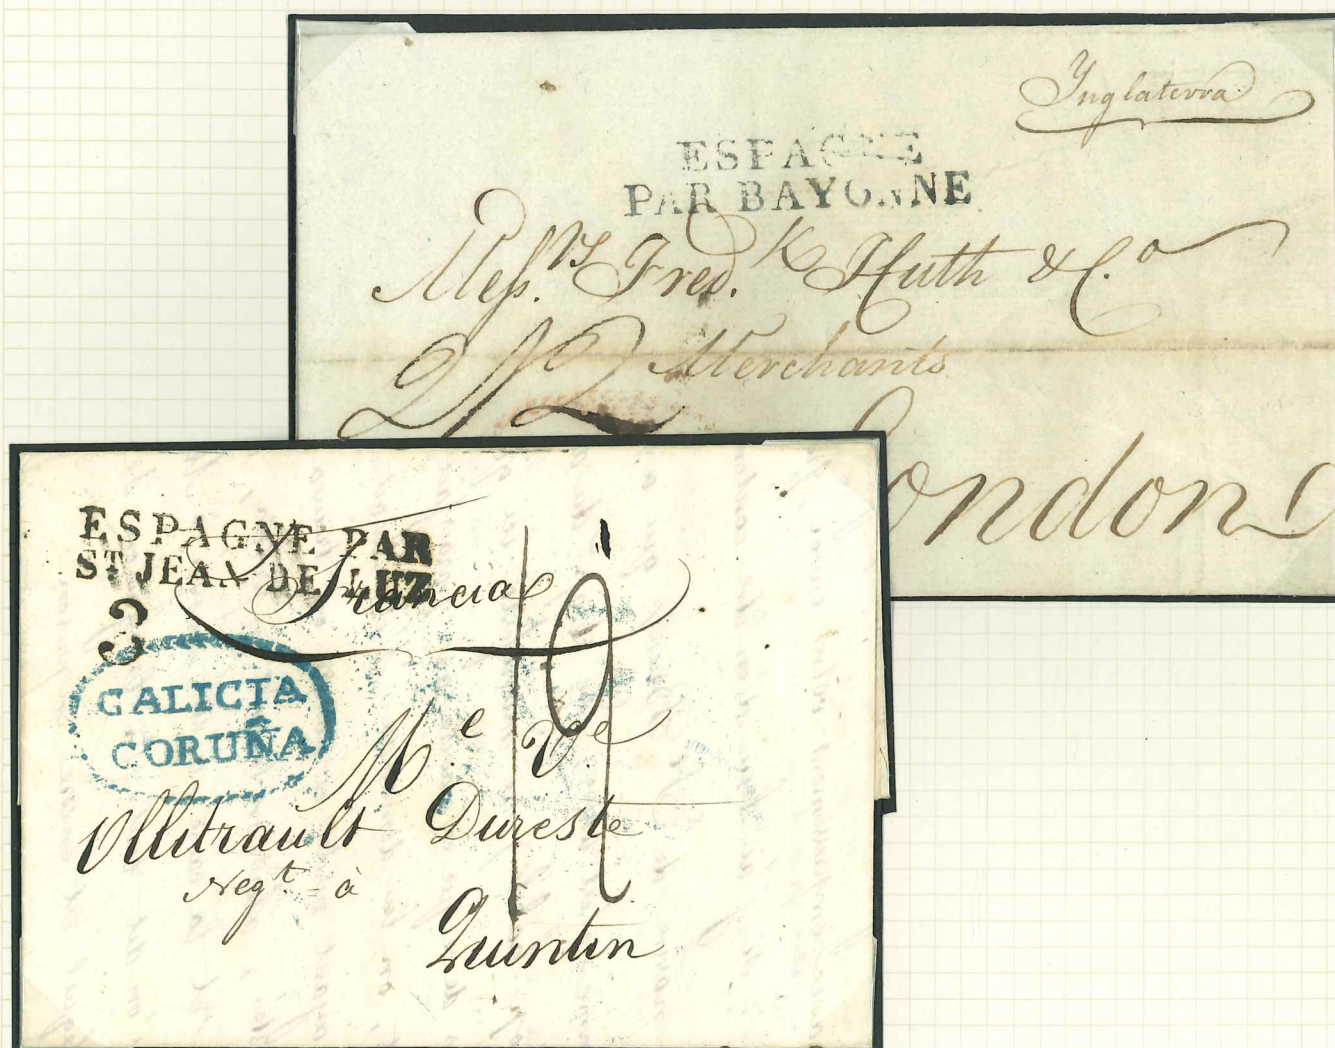 Ynglaterra
ESPAGNE
PAR BAYONNE
Mess.rs Fred.k Huth & C.o
2/2
Merchants
London
ESPAGNE PAR
ST JEAN DE LUZ
Francia
3
19
GALICIA
CORUÑA
M.e V.e
Ollitrault Dureste
Negt = à
Quintin